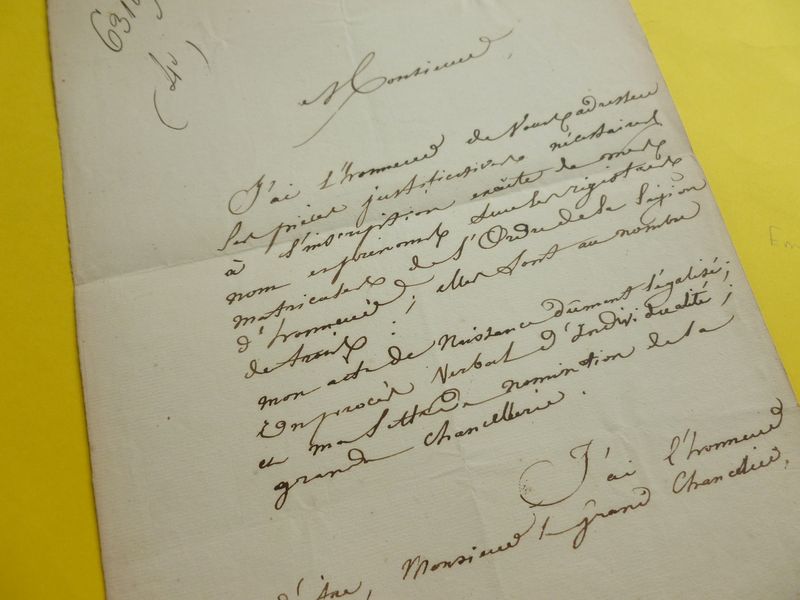 631
(4)
Monsieur,
J'ai l'honneur de vous adresser
les pièces justificatives nécessaires
à l'inscription exacte de mes
nom et prénoms sur les registres
matricules de l'Ordre de la Légion
d'honneur ; elles sont au nombre
de trois :
mon acte de Naissance dûment légalisé ;
un procès Verbal d'Individualité ;
et ma Lettre de nomination de la
grande Chancellerie.
J'ai l'honneur
d'être, Monsieur le grand Chancelier,